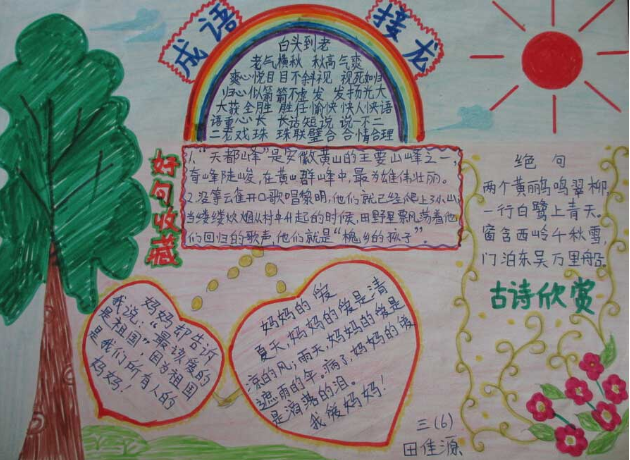 成语 接龙
白头到老
老气横秋 秋高气爽
爽心悦目 目不斜视 视死如归
归心似箭 箭不虚发 发扬光大
大获全胜 胜任愉快 快人快语
语重心长 长话短说 说一不二
二老戏珠 珠联璧合 合情合理
好句收藏
1."天都峰"是安徽黄山的主要山峰之一,
奇峰陡峻,在黄山群峰中,最为雄伟壮丽。
2.没等云雀开口歌唱黎明,他们就已经爬上了小山,
当缕缕炊烟从村中升起的时候,田野里飘荡着他
们回归的歌声,他们就是"槐乡的孩子"。
绝句
两个黄鹂鸣翠柳
一行白鹭上青天。
窗含西岭千秋雪,
门泊东吴万里船
古诗欣赏
妈妈都告诉
我说:"最绕爱的
是祖国"因为祖国
是我们所有人的
妈妈!
妈妈的爱
夏天,妈妈的爱是清
凉的风,雨天,妈妈的爱是
遮雨的伞,病了,妈妈的爱
是滴落的泪。
我爱妈妈!
三(6)
田佳源